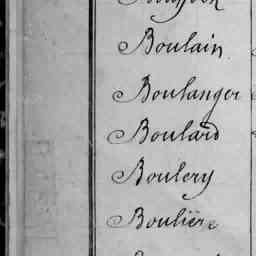 Boulain
Boulanger
Boulard
Boulery
Boulière